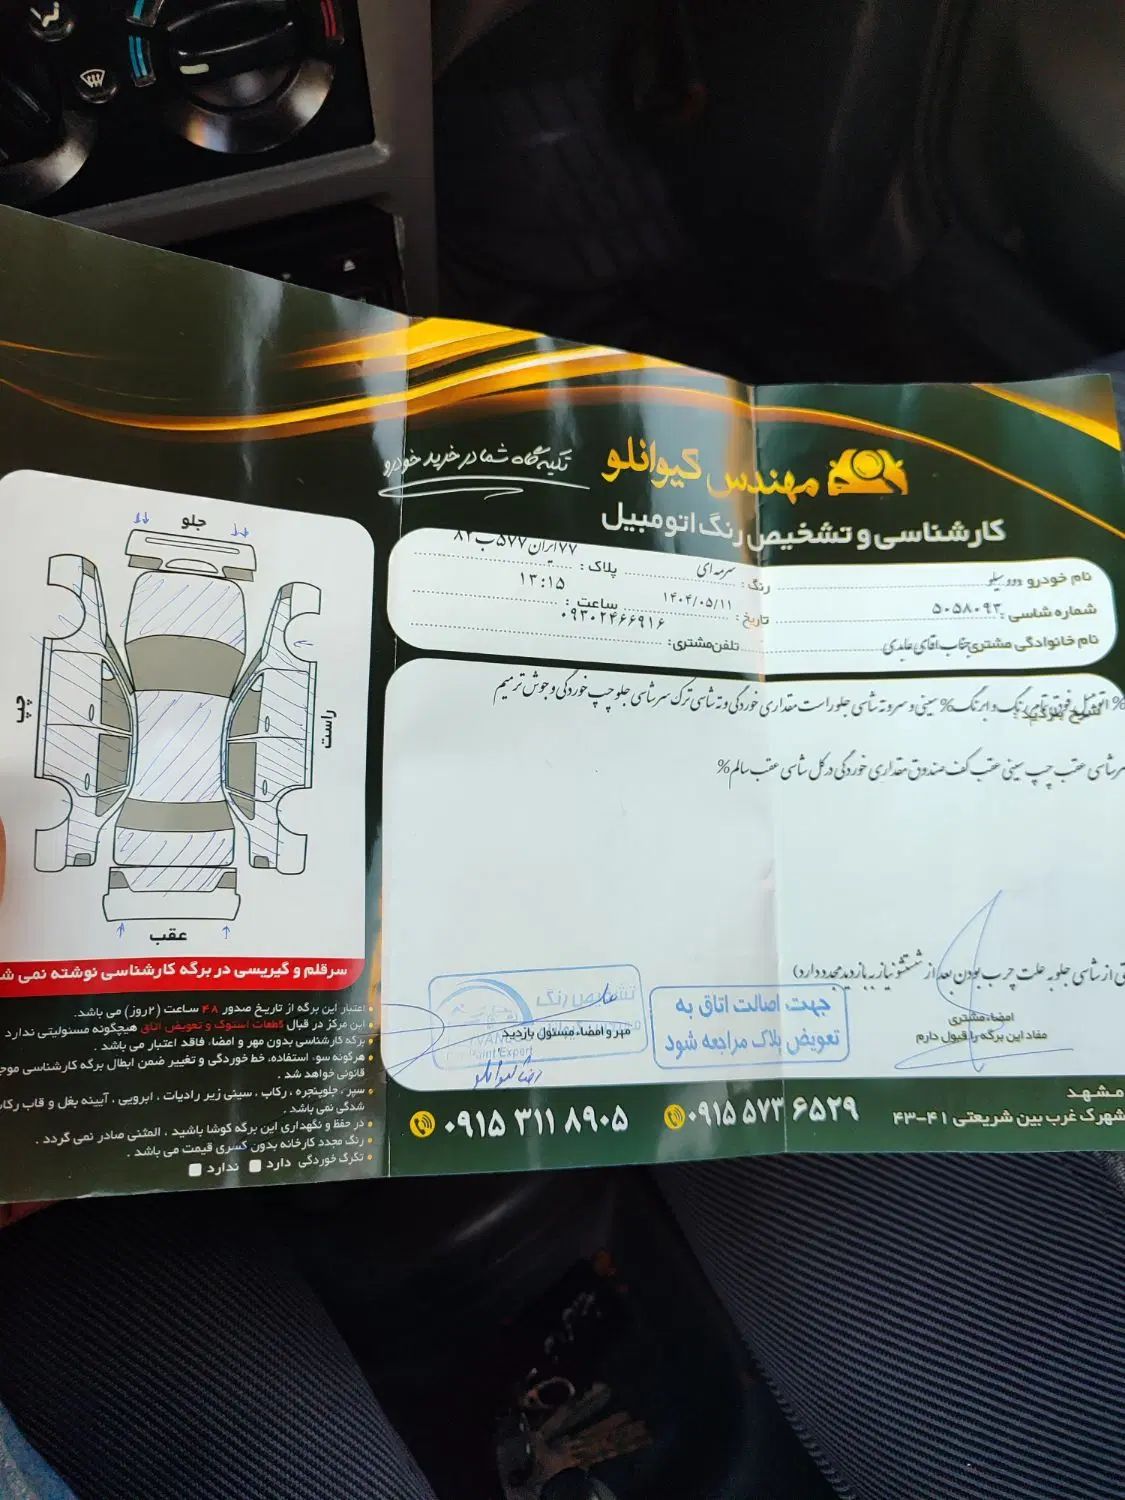 مهندس کیوانلو
تکیه گاه شما در خرید خودرو
کارشناسی و تشخیص رنگ اتومبیل
نام خودرو دوو سیلو
رنگ: سرمه ای
پلاک: ۷۷ایران۵۷۷ب۸۲
شماره شاسی: ۵۰۵۸۰۹۳
تاریخ: ۱۴۰۴/۰۵/۱۱
ساعت: ۱۳:۱۵
نام خانوادگی مشتری جناب اقای عابدی
تلفن مشتری: ۰۹۳۰۲۴۶۶۹۱۶
% اتومبیل فوق تمام رنگ و ابرنگ% سینی و سروته شاسی جلو راست مقداری خوردگی و ته شاسی ترک سرشاسی جلو چپ خوردگی و جوش ترمیم
سرشاسی عقب چپ سینی عقب کف صندوق مقداری خوردگی درکل شاسی عقب سالم%
از شاسی جلو به علت چرب بودن بعد از شستشو نیاز به بازدید مجدد دارد)
جهت اصالت اتاق به
تعویض پلاک مراجعه شود
تشخیص رنگ
مهر و امضاء مسئول بازدید
Paint Expert
امضاء مشتری
مفاد این برگه را قبول دارم
جلو
چپ
راست
عقب
سرقلم و گیریسی در برگه کارشناسی نوشته نمی ش
اعتبار این برگه از تاریخ صدور ۴۸ ساعت (۲روز) می باشد.
این مرکز در قبال قطعات استوک و تعویض اتاق هیچگونه مسئولیتی ندارد
برگه کارشناسی بدون مهر و امضاء، فاقد اعتبار می باشد.
هرگونه سوء استفاده، خط خوردگی و تغییر ضمن ابطال برگه کارشناسی موج
قانونی خواهد شد.
سپر، جلوپنجره، رکاب، سینی زیر رادیات، ابرویی، آیینه بغل و قاب رکا
شدگی نمی باشد.
در حفظ و نگهداری این برگه کوشا باشید، المثنی صادر نمی گردد.
رنگ مجدد کارخانه بدون کسری قیمت می باشد.
تگرگ خوردگی دارد ندارد
۰۹۱۵ ۳۱۱ ۸۹۰۵
۰۹۱۵ ۵۷۳ ۶۵۲۹
مشهد
شهرک غرب بین شریعتی ۴۱-۴۳